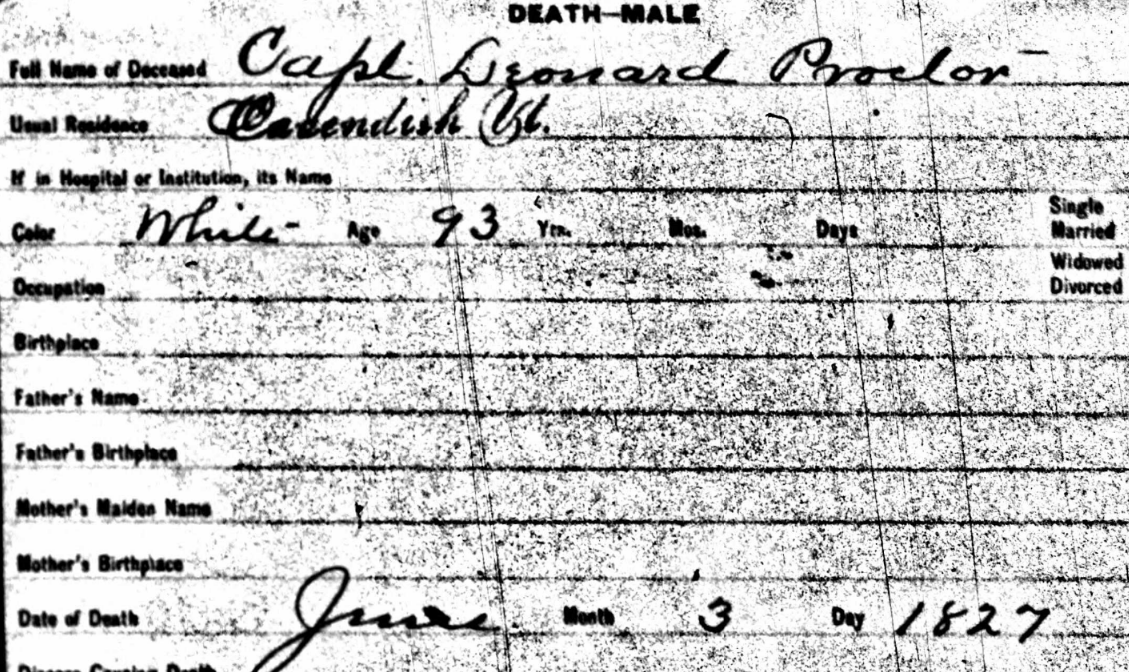 DEATH—MALE
Full Name of Deceased Capt. Leonard Proctor
Usual Residence Cavendish Vt.
If in Hospital or Institution, its Name
Color White Age 93 Yrs. Mos. Days Single
Married
Widowed
Occupation Divorced
Birthplace
Father's Name
Father's Birthplace
Mother's Maiden Name
Mother's Birthplace
Date of Death June Month 3 Day 1827
Disease Causing Death